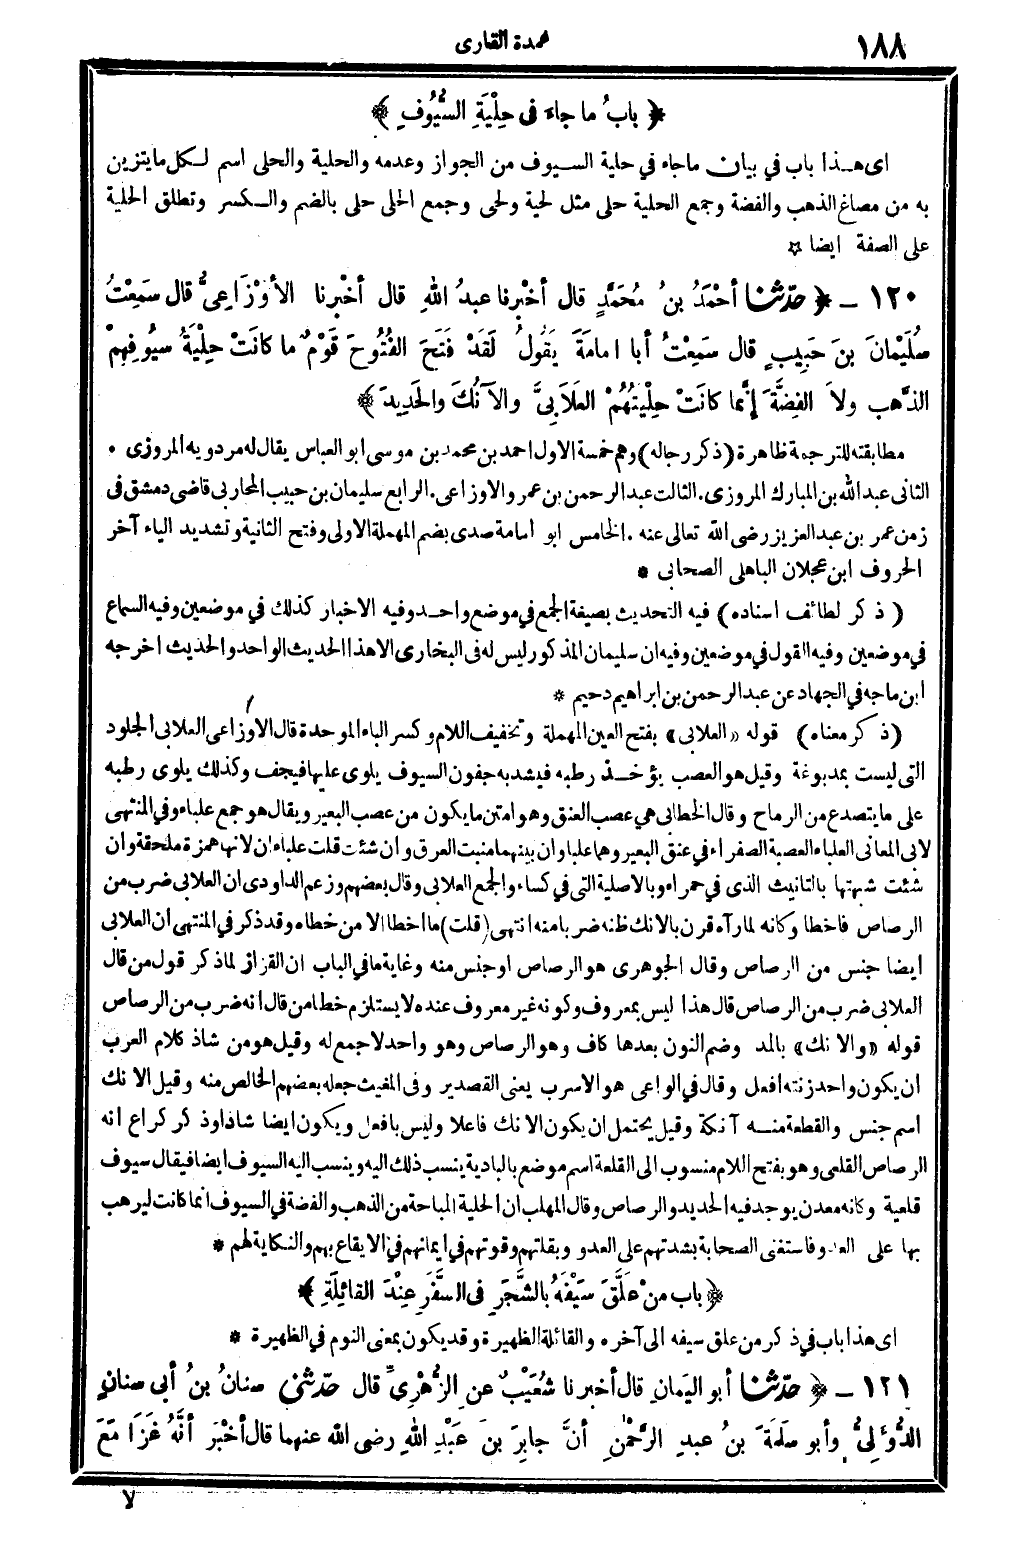 ١٨٨
عمدة القارى
﴿ بابُ ما جاءَ فى حِلْيَةِ السُّيُوفِ ﴾
اى هــذا باب في بيان ماجاء في حلية السيوف من الجواز وعدمه والحلية والحلى اسم لــكل مايتزين
به من مصاغ الذهب والفضة وجمع الحلية حلى مثل لحية ولحى وجمع الحلى حلى بالضم والــكسر وتطلق الحلية
على الصفة ايضا ☆
١٢٠ ــ ﴿ حدّثنا أحْمَدُ بنُ مُحَمَّدٍ قال أخْبرنا عبدُ اللهِ قال أخْبرنا الأوْزَاعِىُّ قال سَمِعْتُ
سُلَيْمانَ بنَ حَبِيبٍ قال سَمِعْتُ أبا امامَةَ يَقُولُ لَقَدْ فَتَحَ الفُتُوحَ قَوْمٌ ما كانَتْ حِلْيَةُ سيُوفِهِمْ
الذَّهب ولاَ الفِضَّةَ إنَّما كانَتْ حِلْيَتُهُمُ العَلاَبِىَّ والآنُكَ والحَدِيدَ ﴾
مطابقته للترجمة ظاهرة (ذكر رجاله) وهم خمسة الاول احمد بن محمد بن موسى ابو العباس يقال له مردويه المروزى .
الثانى عبد الله بن المبارك المروزى. الثالث عبد الرحمن بن عمرو الاوزاعى. الرابع سليمان بن حبيب المحاربى قاضى دمشق فى
زمن عمر بن عبد العزيز رضى الله تعالى عنه . الخامس ابو أمامة صدى بضم المهملة الاولى وفتح الثانية وتشديد الياء آخر
الحروف ابن عجلان الباهلى الصحابى *
( ذكر لطائف اسناده) فيه التحديث بصيغة الجمع في موضع واحــد وفيه الاخبار كذلك في موضعين وفيه السماع
في موضعين وفيه القول في موضعين وفيه ان سليمان المذكور ليس له فى البخارى الا هذا الحديث الواحد والحديث اخرجه
ابن ماجه في الجهاد عن عبد الرحمن بن ابراهيم دحيم *
(ذكر معناه) قوله «العلابى» بفتح العين المهملة وتخفيف اللام وكسر الباء الموحدة قال الاوزاعى العلابى الجلود
التى ليست بمدبوغة وقيل هو العصب يؤخــذ رطبه فيشد به جفون السيوف يلوى عليها فيجف وكذلك يلوى رطبه
على ما يتصدع من الرماح وقال الخطابى هي عصب العنق وهو امتن ما يكون من عصب البعير ويقال هو جمع علباء وفي المنتهى
لابى المعانى العلباء العصبة الصفراء في عنق البعير وهما علباوان بينهما منبت العرق وان شئت قلت علباءان لانها همزة ملحقة وان
شئت شبهتها بالتانيث الذى في حمراء وبالاصلية التى في كساء والجمع العلابى وقال بعضهم وزعم الداودى ان العلابى ضرب من
الرصاص فاخطا وكانه لمارآه قرن بالانك ظنه ضربا منه انتهى (قلت) ما اخطا الا من خطاه وقد ذكر في المنتهى ان العلابى
أيضا جنس من الرصاص وقال الجوهرى هو الرصاص او جنس منه وغاية ما في الباب ان القزاز لما ذكر قول من قال
العلابى ضرب من الرصاص قال هذا ليس بمعروف وكونه غير معروف عنده لا يستلزم خطا من قال انه ضرب من الرصاص
قوله «والانك» بالمد وضم النون بعدها كاف وهو الرصاص وهو واحد لا جمع له وقيل هو من شاذ كلام العرب
ان يكون واحد زنته افعل وقال في الواعى هو الاسرب يعنى القصدير وفى المغيث جعله بعضهم الخالص منه وقيل الانك
اسم جنس والقطعة منــه آنكة وقيل يحتمل ان يكون الانك فاعلا وليس بافعل ويكون ايضا شاذا وذكر كراع انه
الرصاص القلعى وهو بفتح اللام منسوب الى القلعة اسم موضع بالبادية ينسب ذلك اليه وينسب اليه السيوف ايضا فيقال سيوف
قلعية وكانه معدن يوجد فيه الحديد والرصاص وقال المهلب ان الحلية المباحة من الذهب والفضة في السيوف انما كانت ليرهب
بها على العدو فاستغنى الصحابة بشدتهم على العدو وبقلتهم وقوتهم في ايمانهم في الايقاع بهم والنكاية لهم *
﴿ باب منْ عَلَّقَ سَيْفَهُ بالشَّجَرِ فى السَّفَرِ عِنْدَ القائِلَةِ ﴾
اى هذا باب في ذكر من علق سيفه الى آخره والقائلة الظهيرة وقد يكون بمعنى النوم في الظهيرة *
١٢١ ــ ﴿ حدّثنا أبو اليَمانِ قال أخبرنا شُعَيْبٌ عنِ الزُّهْرِىِّ قال حدّثنى سنانُ بنُ أبى سنانٍ
الدُّؤَلِىُّ وأبو سلَمَةَ بنُ عبدِ الرَّحْمٰنِ أنَّ جابِرَ بنَ عَبْدِ اللهِ رضى الله عنهما قال أخْبَرَ أنَّهُ غَزَا مَعَ
لا